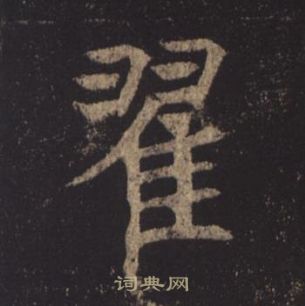 翟
词典网